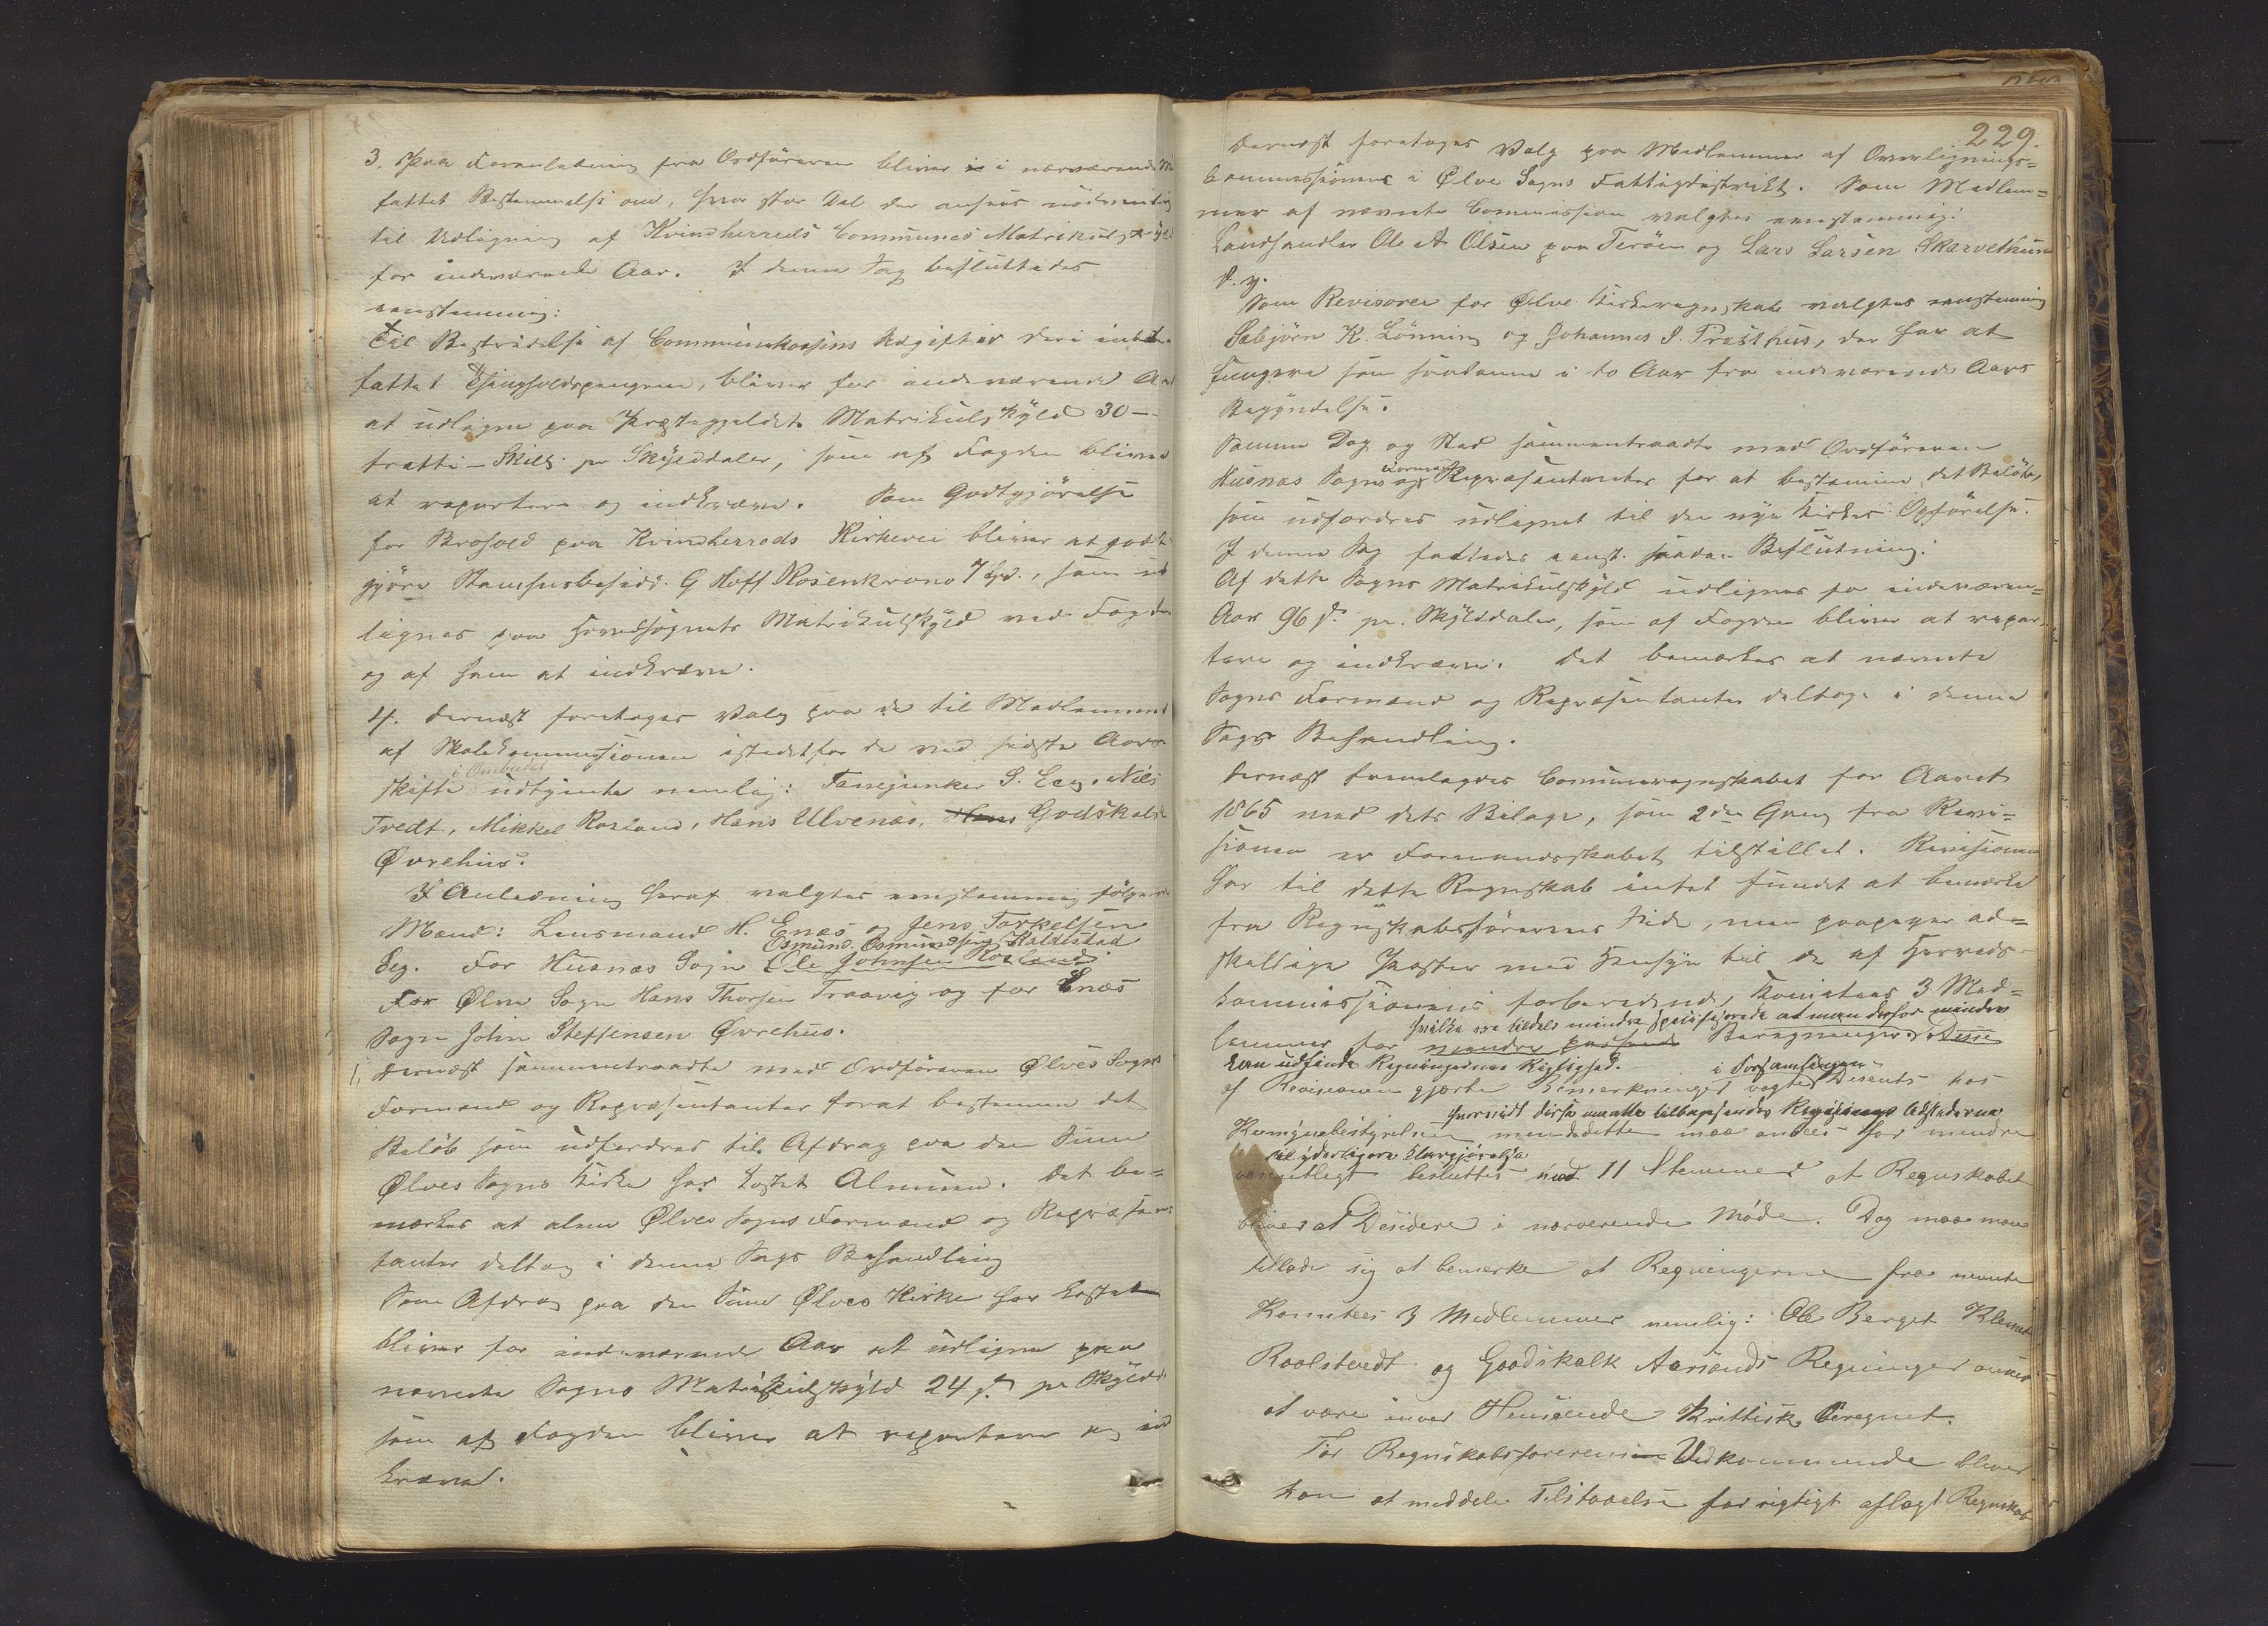 3. Paa Foranledning fra Ordföreren bliver i nærværende Mö
fattet Bestemmelse om, hvor stor Del der ansees nödvendig
til Udligning af Kvindherreds Communes Matrikulskyld
for indeværende Aar. I denne Sag besluttedes
eenstemmig:
Til Bestridelse af Communekassens Udgifter deri indbe-
fattet Thinghold­spengene, bliver for indeværende Aar
at udligne paa Præstegjeldets Matrikulskyld 30 –
tretti – Skill. pr Skylddaler, som af Fogden bliver
at repartere og indkræve. Som Godtgjörelse
for Brohold paa Kvindherreds Kirkevei bliver at godt
gjöre Stamhusbesidd. G Hoff Rosenkrone 7 Spd., som ud
lignes paa Hovedsognets Matrikulskyld ved Fogden
og af ham at indkræve.
4. Dernæst foretoges Valg paa de til Medlemmer
af Skolekommissionen istedetfor de ved sidste Aars
i Ombudet
skifte udtjente nemlig: Tarrejunker S. Eeg. Nils
Tvedt, Mikkel Rosland, Hans Ulvenæs, Hans Godskalk
Øvrehus.
I Anledning heraf valgtes eenstemmig fölgende
Mænd: Lensmand H. Enæs og Jens Torkelsen
Osmund Osmundsen Haldstad
Seg. For Husnæs Sogn Ole Johnsen Rosland.
For Ølve Sogn Hans Thorsen Traavig og for Enæs
Sogn John Steffensen Øvrehus.
1, Dernæst sammentraadte med Ordföreren Ølves Sogns
Formænd og Repræsentanter forat bestemme det
Belöb som udfordres til Afdrag paa den Sum
Ølves Sogns Kirke har kostet Almuen. Det be-
mærkes at alene Ølves Sogns Formænd og Repræsen-
tanter deltog i denne Sags Behandling
Som Afdrag paa den Sum Ølves Kirke har kostet
bliver for indeværende Aar at udligne paa
nævnte Sogns Matrikulskyld 24 s. pr Skyldd.
som af Fogden bliver at repartere og ind
kræves.
229.
Dernæst foretoges Valg paa Medlemmer af Overlignings-
kommissionen i Ølve Sogns Fattigdistrikt. Som Medlem-
mer af nævnte Commission valgtes eenstemmig:
Landhandler Ole A Olsen paa Teröen og Lars Larsen Skarvethun
d. y.
Som Revisorer for Ølve Kirkeregnskab valgtes eenstemmig
Sebjörn K. Lönning og Johannes I. Præsthus, der har at
fungere som saadanne i to Aar fra indeværende Aars
Begyndelse.
Samme Dag og Sted sammentraadte med Ordföreren
Formænd
Husnæs Sogns og Repræsentanter for at bestemme det Belöb,
som udfordres udlignet til den nye Kirkes Opförelse.
I denne Sag fattedes eenst. saadan Beslutning:
Af dette Sogns Matrikulskyld udlignes for indeværen-
Aar 96 s. pr. Skylddaler, som af Fogden bliver at repar-
tere og indkræve. Det bemærkes at nævnte
Sogns Formænd og Repræsentanter deltoge i denne
Sags Behandling.
Dernæst fremlagdes Communeregnskabet for Aaret
1865 med dets Bilage, som 2den Gang fra Revi-
sionen er Formandsskabet tilstillet. Revisionen
har til dette Regnskab intet fundet at bemærke
fra Regnskabsförerens Side, men paapeger ad-
skillige Poster med Hensyn til de af Herreds-
kommissionens forberedende Komitees 3 Med-
hvilke ere tildels mindre specificerede at man derfor mindre
lemmer for mindre passende Beregninger. Disse
kan udfinde Regningernes Rigtighed.
i Forsamlingen
af Revisionen gjorte Bemerkninger vagte Desents hos
hvorvidt disse maatte tilbagesendes Revisions Udstederne
Komunebestyrelsen men dette maa ansees for mindre
til yderligere Klargjörelse
væsentlegt besluttes med 11 Stemmer at Regnskabet
bliver at Desidere i nærverende Möde. Dog maa man
tillade sig at bemerke at Regningerne fra nevnte
Komitees 3 Medlemmer nemlig: Ole Berget Klemet
Raolstvedt og Goodskalk Aarsands Regninger anseer
at være i nver Henseende Krittisk Beregnet.
For Regnskabsforerens Vedkommende bliver
ham at meddele Tilstaaelse for rigtigt aflagt Regnskab